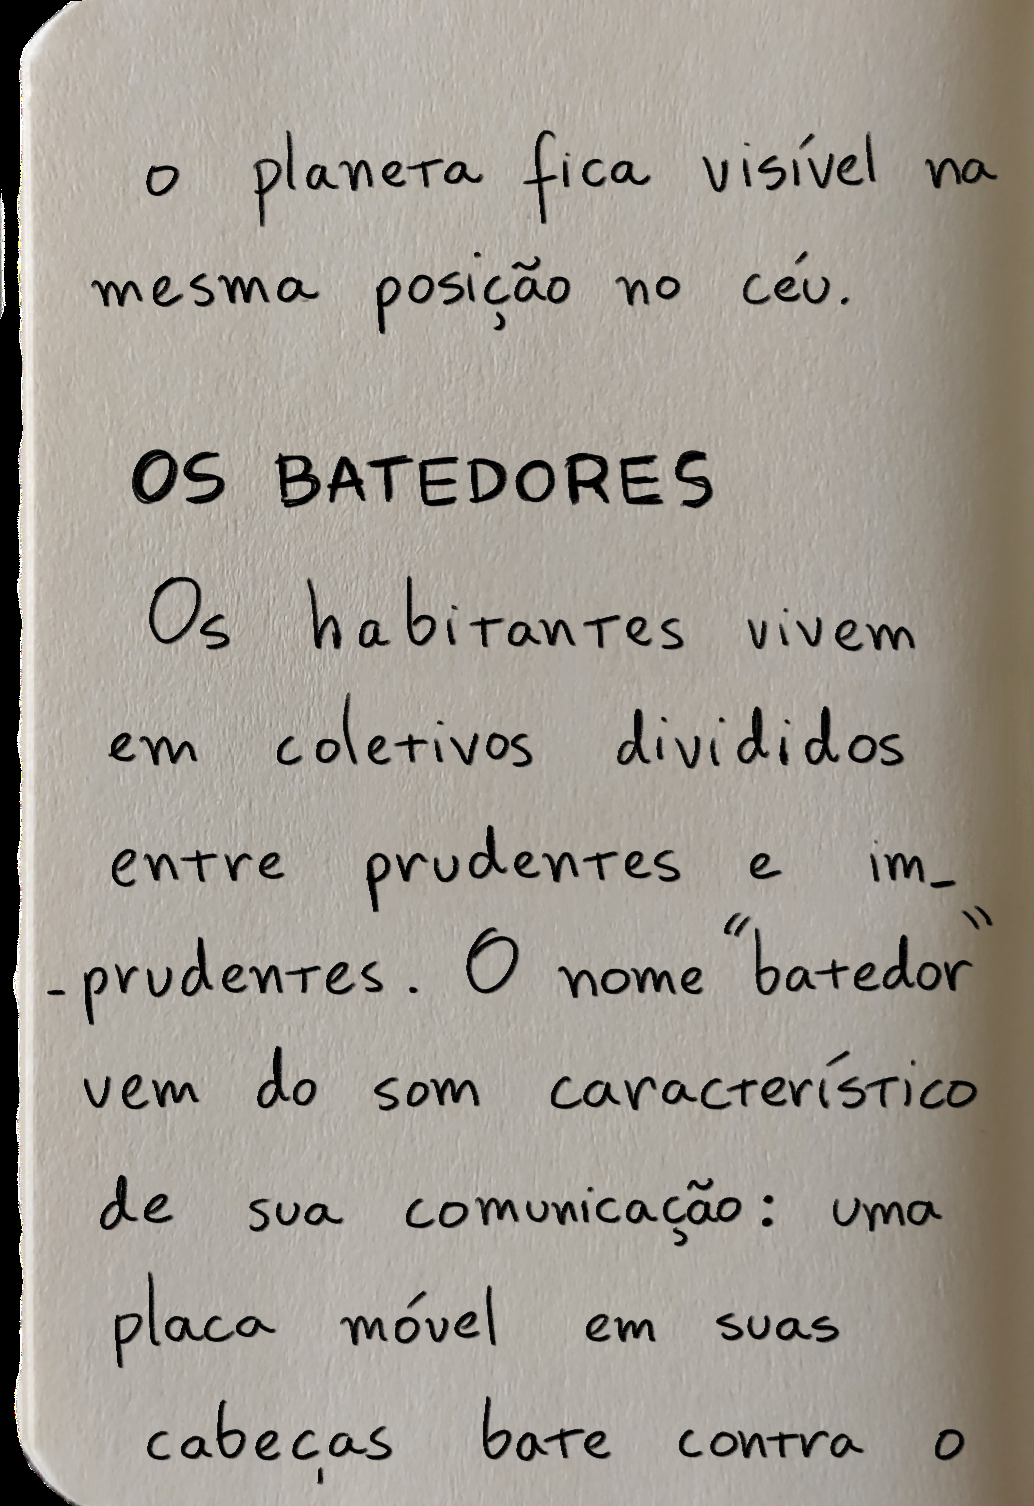 o planeta fica visível na
mesma posição no céu.
OS BATEDORES
Os habitantes vivem
em coletivos divididos
entre prudentes e im_
-prudentes. O nome “batedor”
vem do som característico
de sua comunicação: uma
placa móvel em suas
cabeças bate contra o